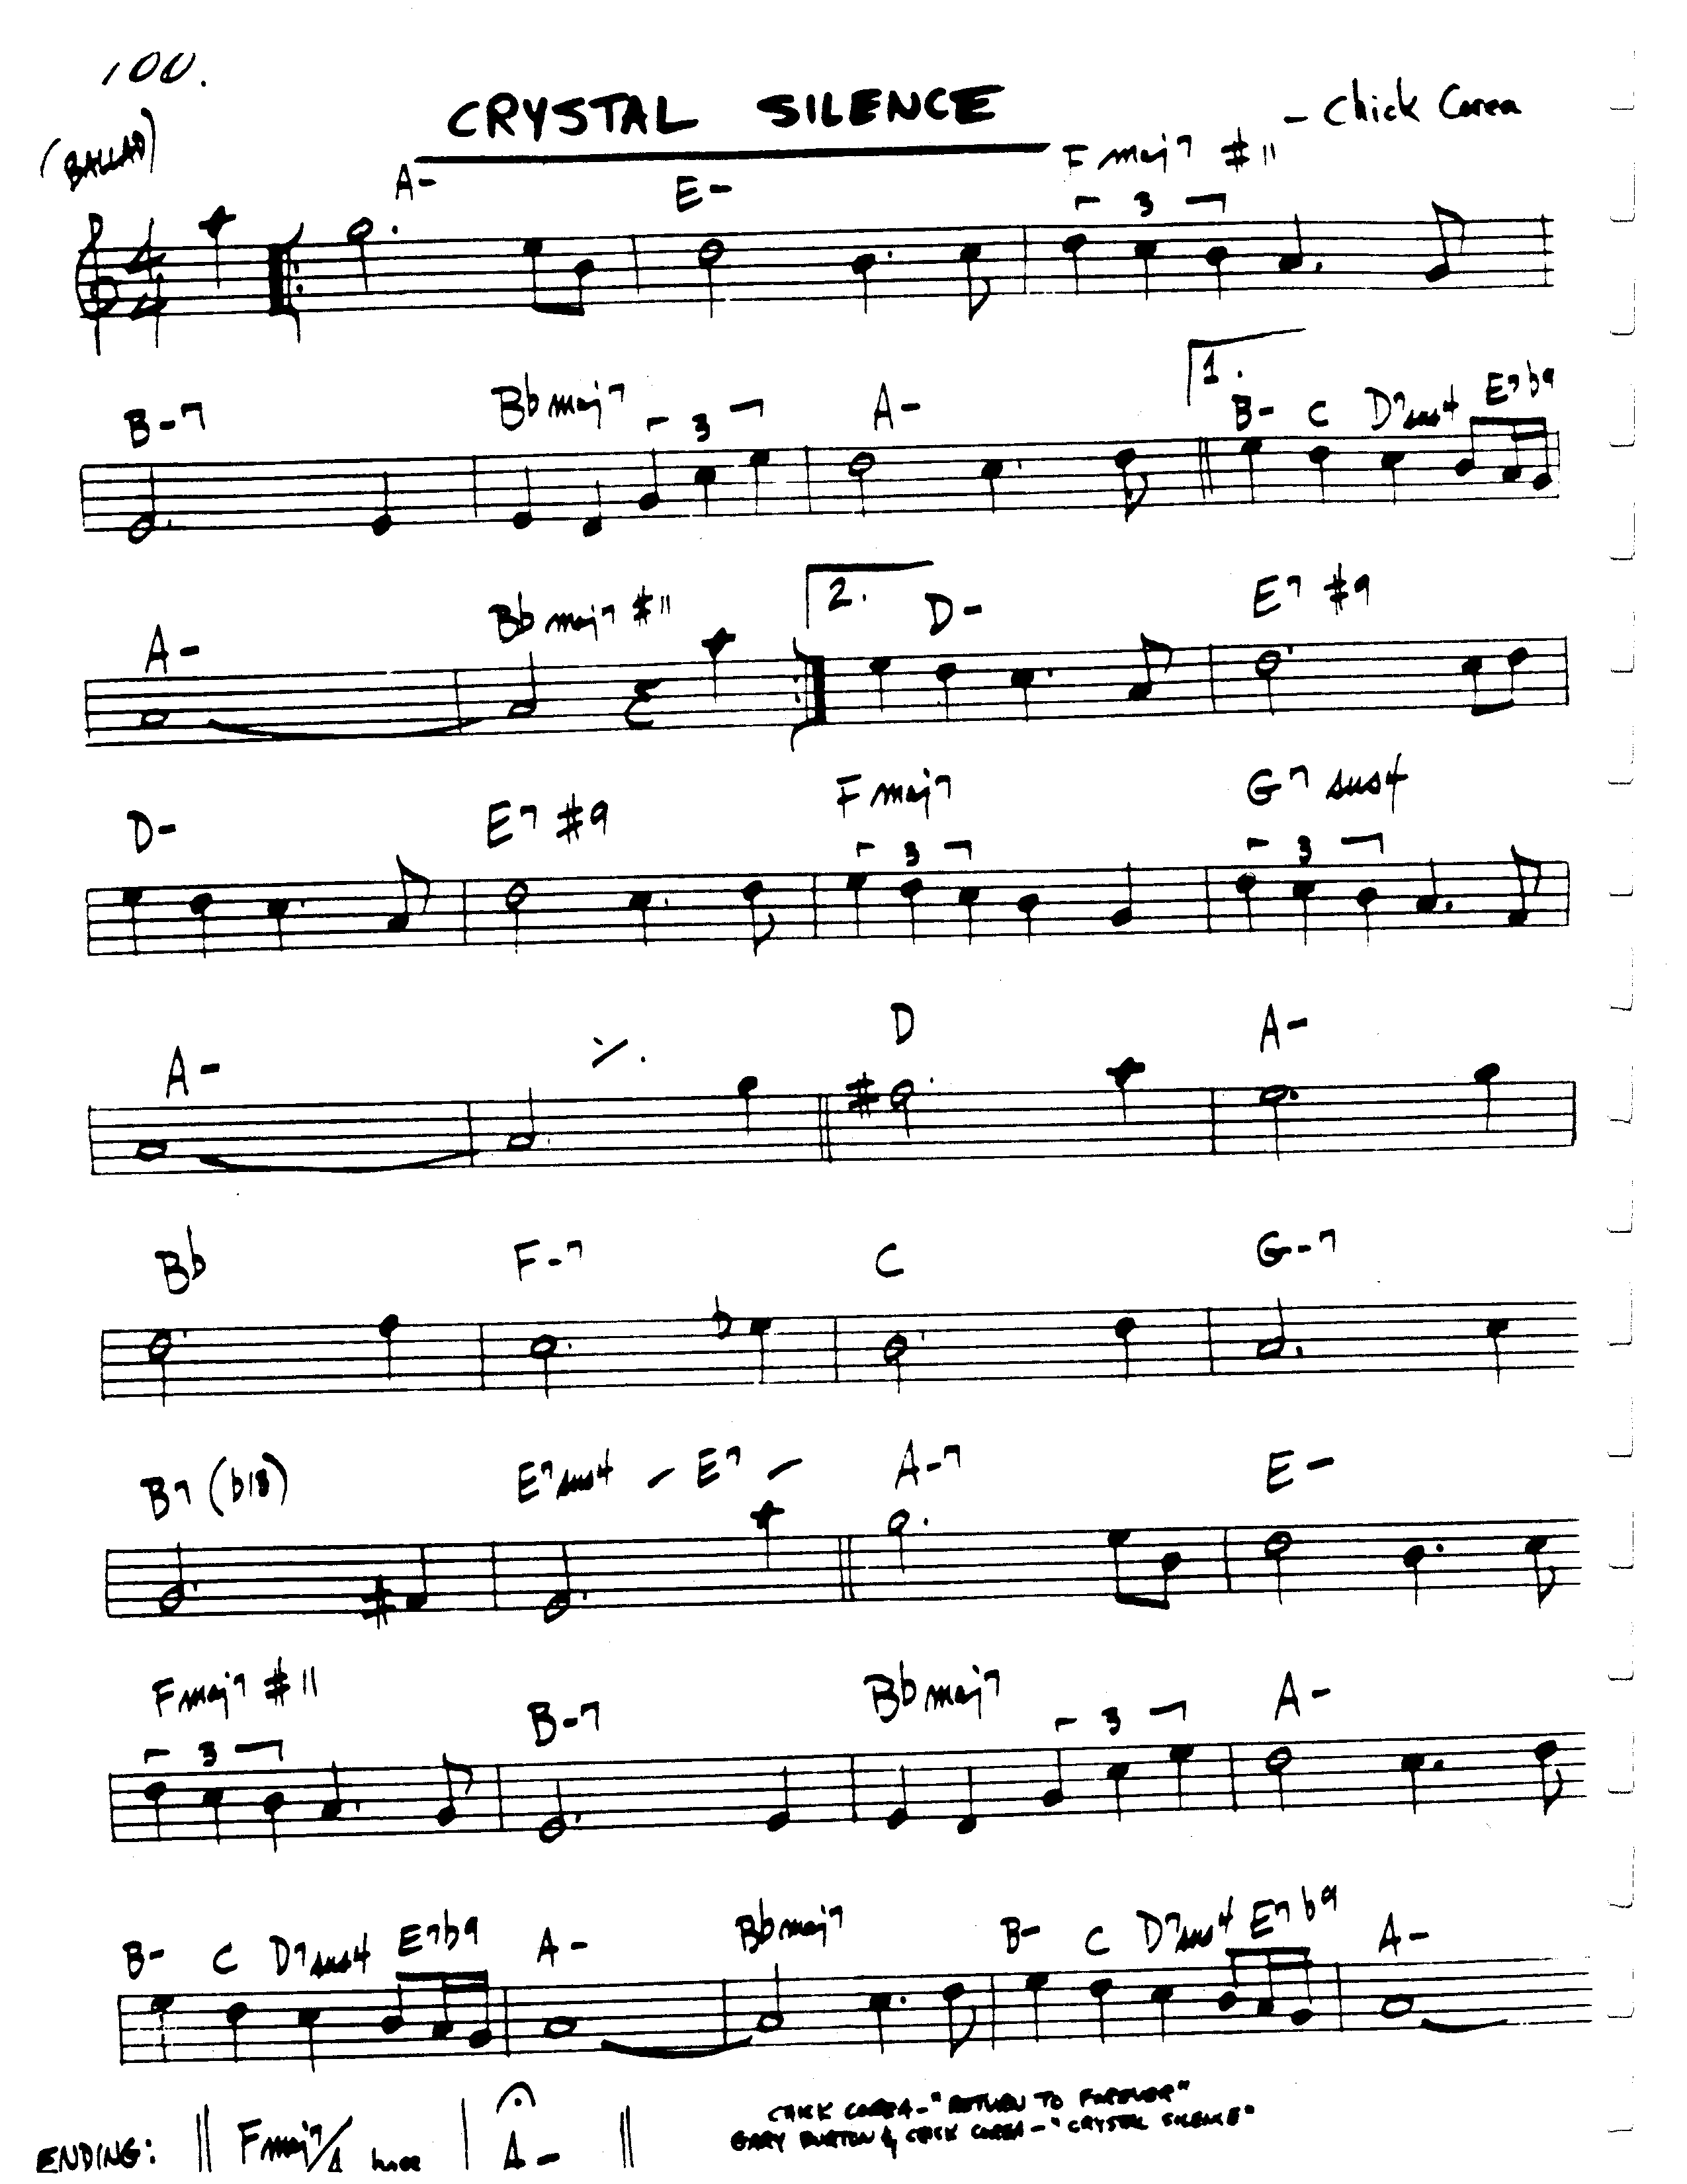 100.
CRYSTAL SILENCE - Chick Corea
(BALLAD)
A- E- Fmaj7 #11
3
1.
B-7 Bbmaj7 A- B- C D7sus4 E7b9
3
2.
A- Bbmaj7 #11 D- E7 #9
D- E7 #9 Fmaj7 G7 sus4
3 3
A- ٪ D A-
Bb F-7 C G-7
B7 (b13) E7sus4 - E7 - A-7 E-
Fmaj7 #11 B-7 Bbmaj7 A-
3 3
B- C D7sus4 E7b9 A- Bbmaj7 B- C D7sus4 E7b9 A-
ENDING: || Fmaj7/A | A- ||
CHICK COREA - "RETURN TO FOREVER"
GARY BURTON & CHICK COREA - "CRYSTAL SILENCE"